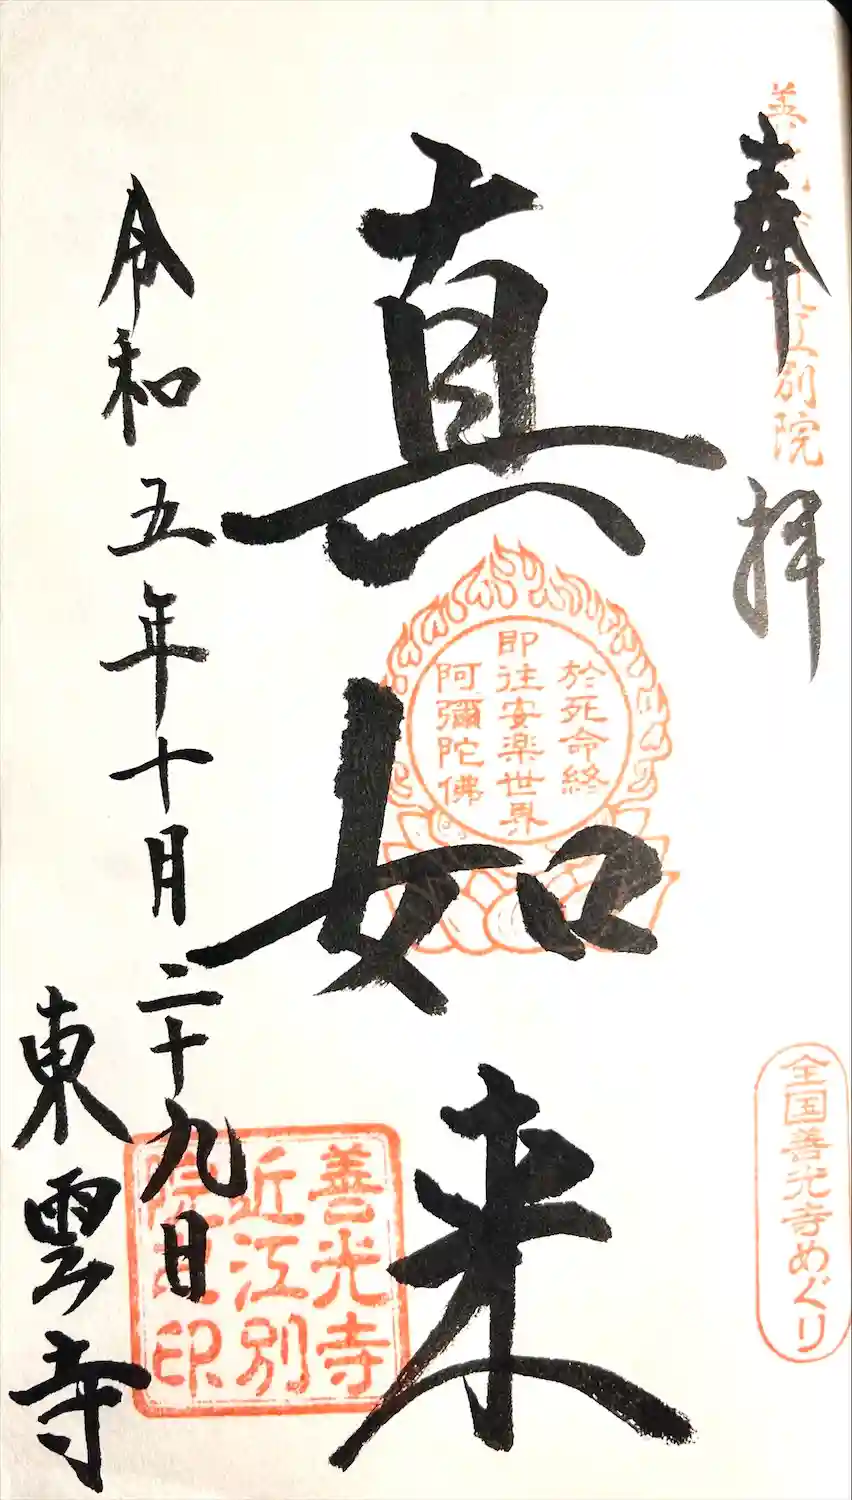 奉拝
善光寺近江別院
全国善光寺めぐり
真如来
於死命終
即往安楽世界
阿彌陀佛
善光寺
近江別
院之印
令和五年十月二十九日
東雲寺